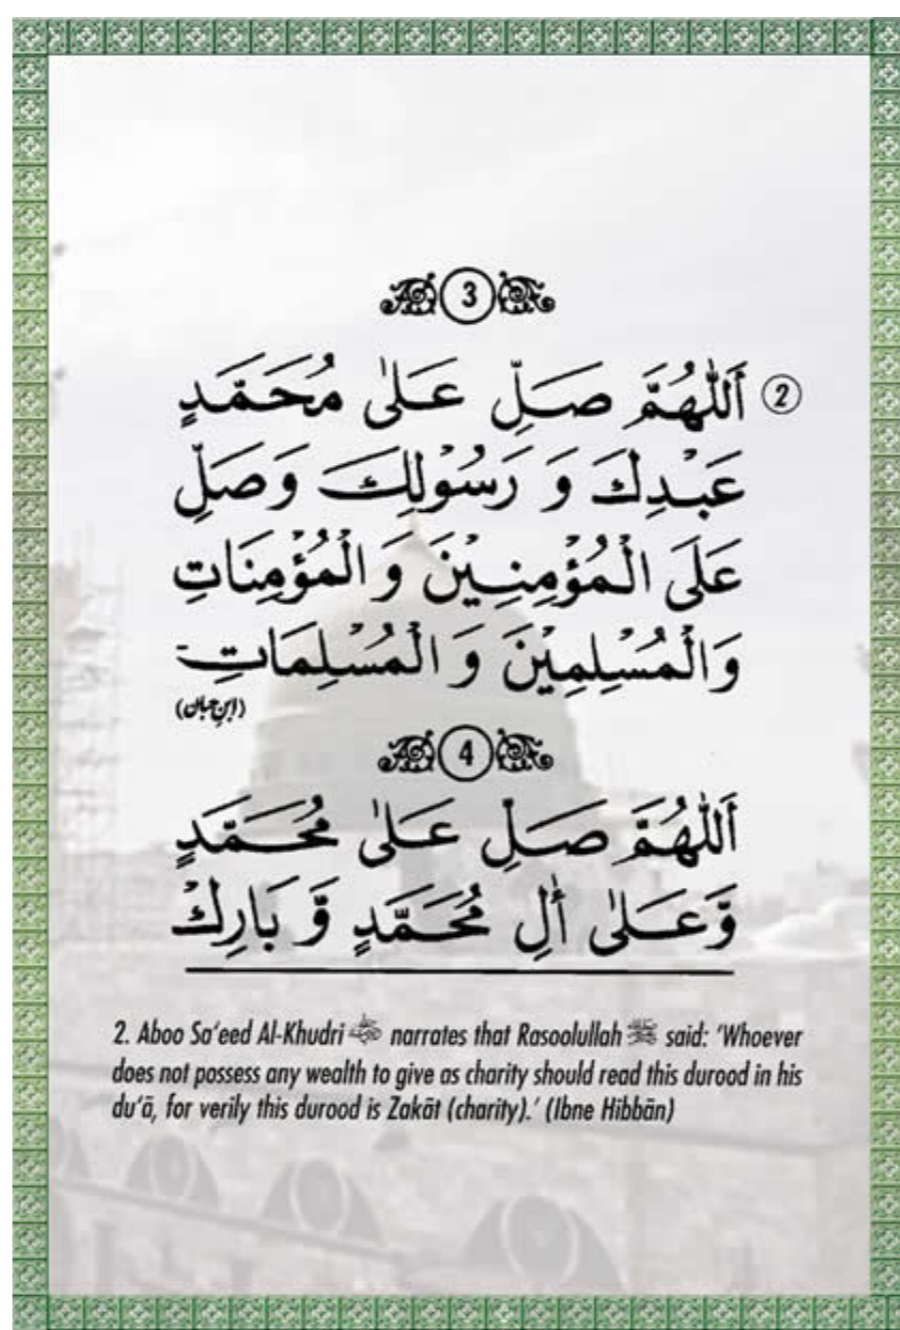 3
② اَللّٰهُمَّ صَلِّ عَلٰى مُحَمَّدٍ
عَبْدِكَ وَ رَسُوْلِكَ وَصَلِّ
عَلَى الْمُؤْمِنِيْنَ وَ الْمُؤْمِنَاتِ
وَالْمُسْلِمِيْنَ وَ الْمُسْلِمَاتِ
(ابنِ حبان)
4
اَللّٰهُمَّ صَلِّ عَلٰى مُحَمَّدٍ
وَّعَلٰى أٰلِ مُحَمَّدٍ وَّ بَارِكْ
2. Aboo Sa‘eed Al-Khudri narrates that Rasoolullah ﷺ said: ‘Whoever
does not possess any wealth to give as charity should read this durood in his
du‘ā, for verily this durood is Zakāt (charity).’ (Ibne Hibbān)